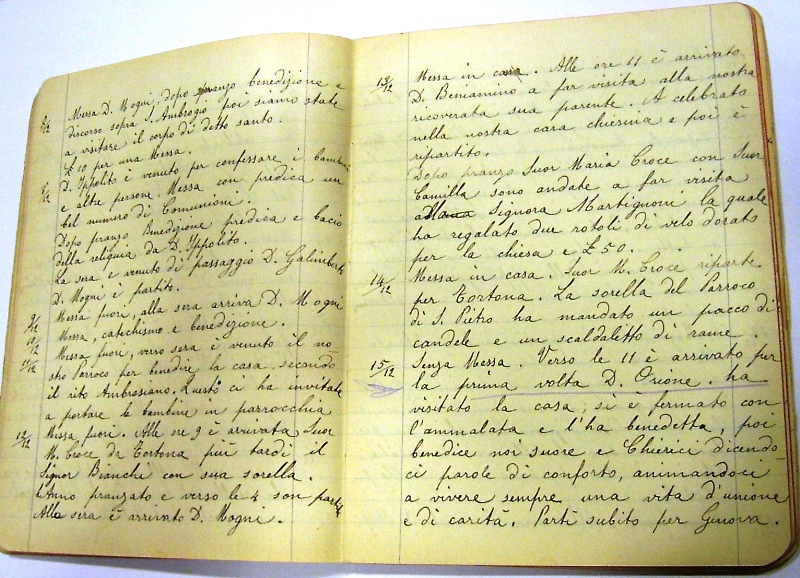 7/12 Messa D. Mogni, dopo pranzo benedizione e
discorso sopra S. Ambrogio poi siamo state
a visitare il corpo di detto santo.
£ 10 per una Messa.
8/12 D. Ippolito è venuto per confessare i bambini
e altre persone. Messa con predica un
bel numero di Comunioni.
Dopo pranzo Benedizione predica e bacio
della reliquia da D. Ippolito.
La sera e venuto di passaggio D. Galimberti
D. Mogni è partito.
9/12 Messa fuori, alla sera arriva D. Mogni
10/12 Messa, catechismo e benedizione.
11/12 Messa fuori, verso sera è venuto il no-
stro Parroco per benedire la casa secondo
il rito Ambrosiano. Questo ci ha invitate
a portare le bambine in parrocchia
12/12 Messa fuori. Alle ore 9 è arrivata Suor
M. Croce da Tortona più tardi il
Signor Bianchi con sua sorella.
Anno pranzato e verso le 4 son partiti
Alla sera è arrivato D. Mogni.
13/12 Messa in casa. Alle ore 11 è arrivato
D. Beniamino a far visita alla nostra
recoverata sua parente. A celebrato
nella nostra cara chiesina e poi è
ripartito.
Dopo pranzo Suor Maria Croce con Suor
Camilla sono andate a far visita
alla Signora Martignoni la quale
ha regalato due rotoli di velo dorato
per la chiesa e £ 50.
14/12 Messa in casa. Suor M. Croce riparte
per Tortona. La sorella del Parroco
di S. Pietro ha mandato un pacco di
candele e un scaldaletto di rame.
15/12 Senza Messa. Verso le 11 è arrivato per
la prima volta D. Orione. ha
visitato la casa, si è fermato con
l'ammalata e l'ha benedetta, poi
benedice noi suore e Chierici dicendo-
ci parole di conforto, animandoci
a vivere sempre una vita d'unione
e di carità. Partì subito per Genova.